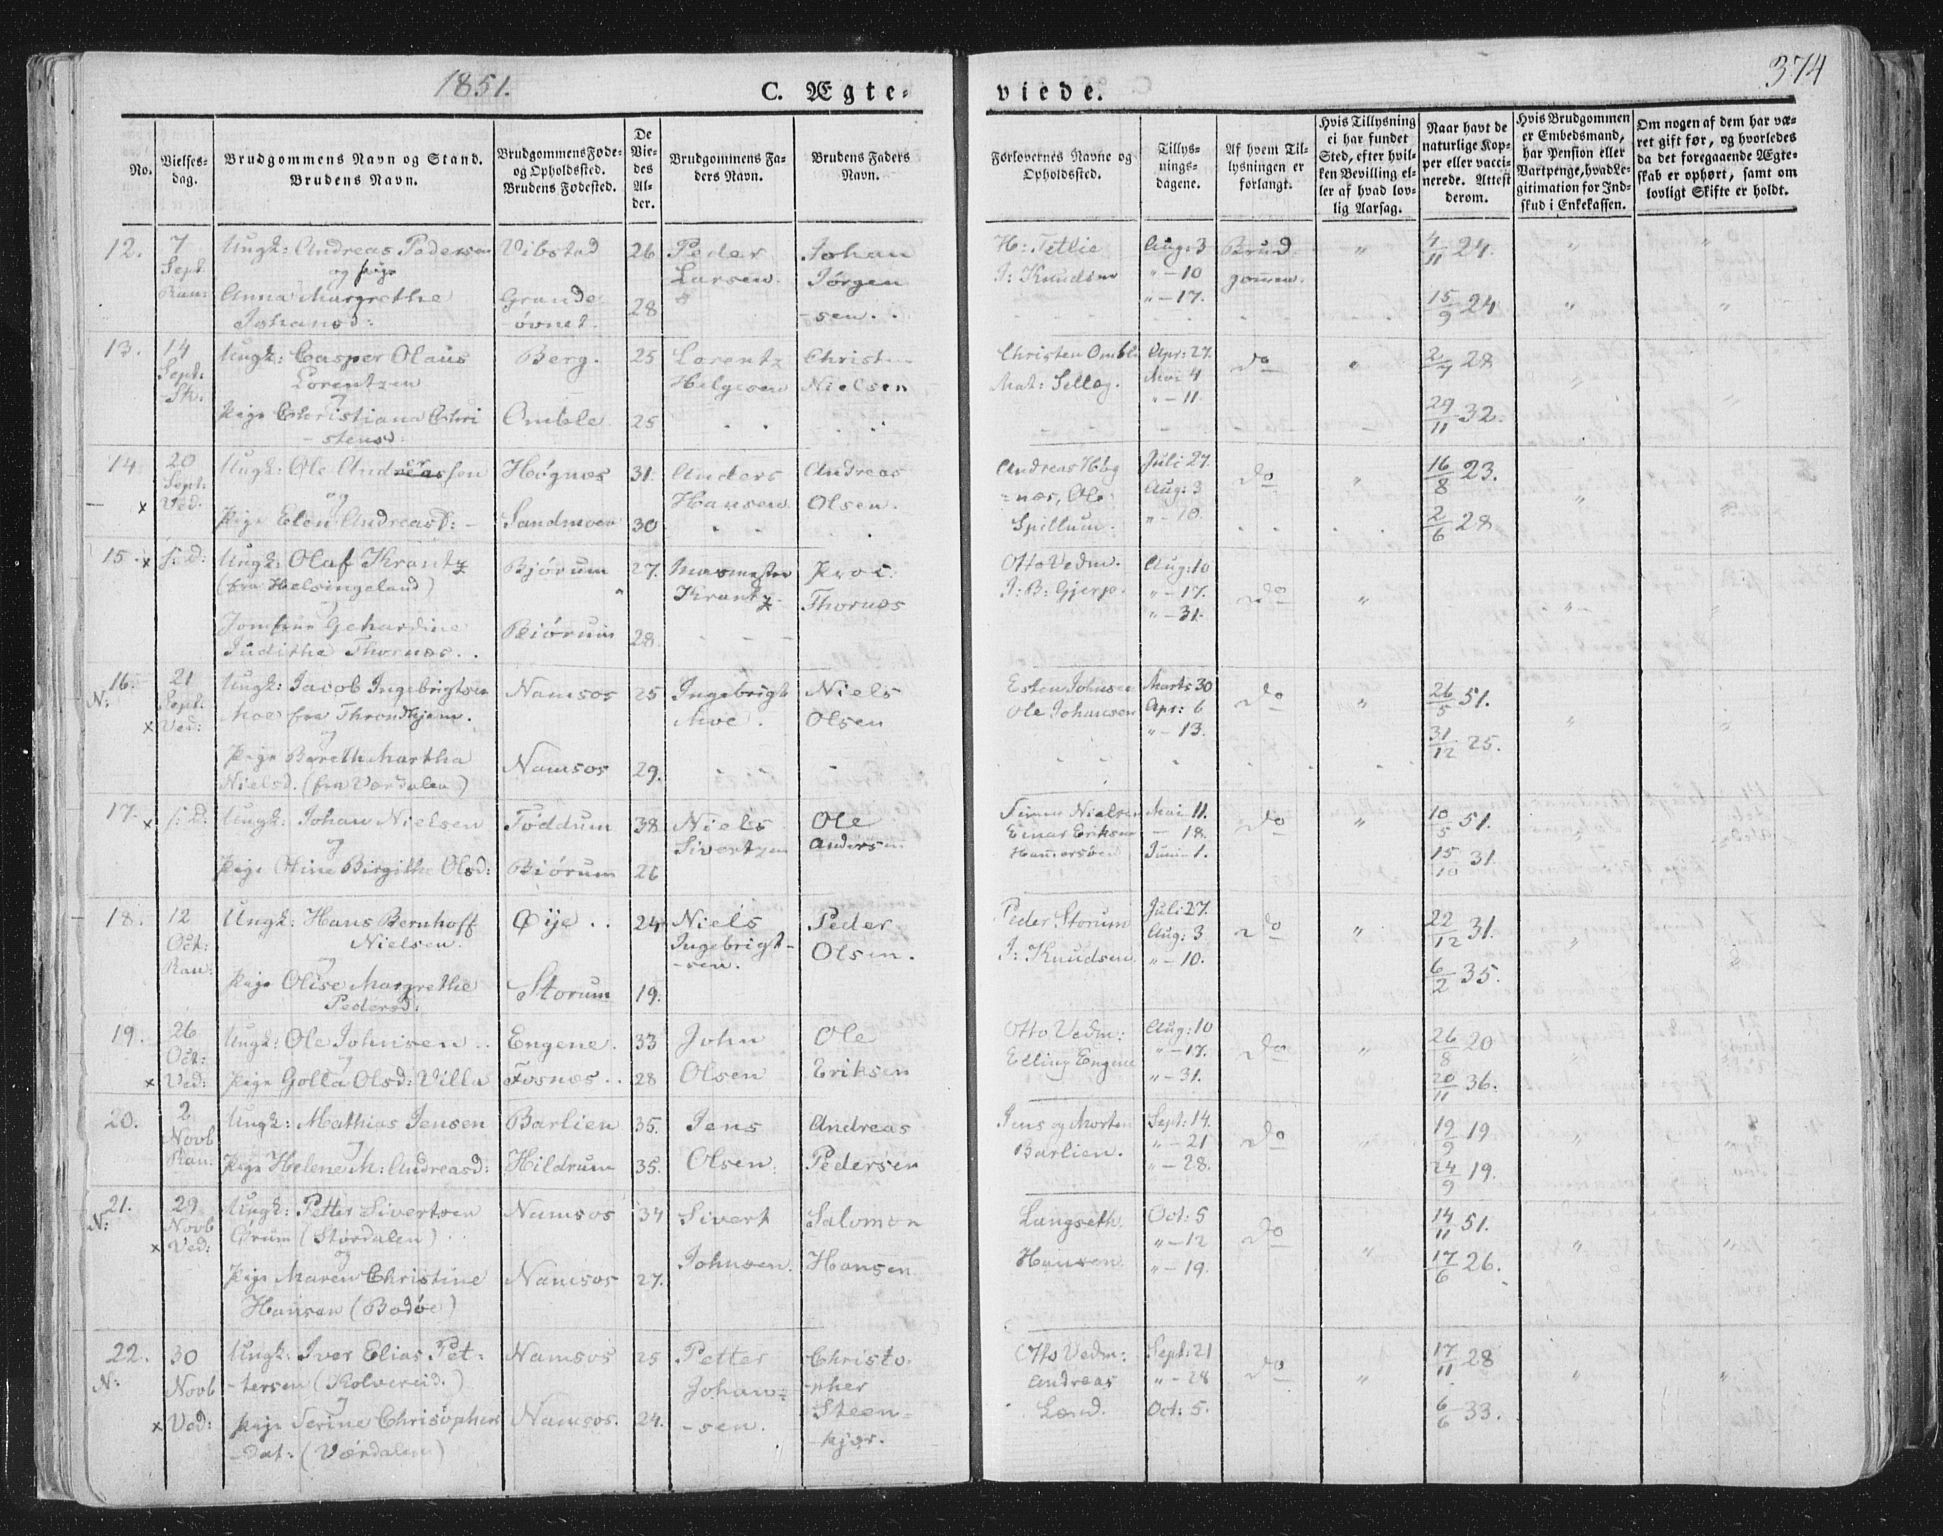 1851.
C. Ægte-
viede.
374
No.
Vielses-
dag.
Brudgommens Navn og Stand.
Brudens Navn.
Brudgommens Føde-
og Opholdssted.
Brudens Fødested.
De
Vie-
des
Al-
der.
Brudgommens Fa-
ders Navn.
Brudens Faders
Navn.
Forlovernes Navne og
Opholdssted.
Tillys-
nings-
dagene.
Af hvem Til-
lysningen er
forlangt.
Hvis Tillysning
ei har fundet
Sted, efter hvil-
ken Bevilling el-
ler af hvad lov-
lig Aarsag.
Naar havt de
naturlige Kop-
per eller vacci-
nerede. Attest
derom.
Hvis Brudgommen
er Embedsmand,
har Pension eller
Vartpenge, hvad Le-
gitimation for Ind-
skud i Enkekassen.
Om nogen af dem har væ-
ret gift før, og hvorledes
da det foregaaende Ægte-
skab er ophørt, samt om
lovligt Skifte er holdt.
12. 7 Sept. Ran:
Ungk: Andreas Pedersen
og pige
Anna Margrethe
Johansd:
Vibstad 26
Grande
-øvnet. 28
Peder
Larsen.
Johan
Jørgen
-sen.
H: Tetlie
J: Knudsen
Aug: 3
" - 10
" - 17.
Brud
gommen.
4/11 24.
15/9 24
13. 14 Sept: Sk:
Ungk: Casper Olaus
Lorentzen
og
Pige Christiana Chri
-stensd:
Berg. 25
Omble 25
Lorentz
Helgesen
Christen
Nielsen
Christen Omble
Mat: Sellæg.
Apr: 27.
Mai 4
" - 11.
do
2/4 28
29/11 32.
14. 20 Sept: Ved:
Ungk: Ole Andreassen
og
Pige Elen Andreasd:
Høgnæs 31.
Sandmoen 30
Anders
Hansen
Andreas
Olsen.
Andreas Høg
=næs, Ole
Spillum.
Juli 27.
Aug: 3
" - 10.
do
16/8 23.
2/6 28
15. s: d:
Ungk: Olaf Krantz
(fra Helsingeland)
og
Jomfrue Gehardine
Judithe Thornæs.
Bjørum 27.
Biørum 28
Masmester
Krantz
Proc:
Thornæs
Otto Vedm.
J: B: Gjerp.
Aug: 10
" - 17.
" - 31.
do
16. N: 21 Sept: Ved:
Ungk: Jacob Ingebrigtsen
Moe fra Throndhjem.
og
Pige Bereth Martha
Nielsd. (fra Værdalen)
Namsos 25
Namsos 29.
Ingebrigt
Moe.
Niels
Olsen
Esten Johnsen
Ole Johansen
Marts 30
Apr: 6
" - 13.
do
26/5 51.
31/12 25.
17. s: d:
Ungk: Johan Nielsen
og
Pige Oline Birgithe Olsd:
Føddum 38
Biørum 26
Niels
Sivertzen
Ole
Andersen
Simen Nielsen
Einar Eriksen
Hammersøen
Mai 11.
- 18.
Juni - 1.
do
10/5 51.
15/10 31.
18. 12 Oct: Ran:
Ungk: Hans Bernhoff
Nielsen.
og
Pige Olise Margrethe
Pedersd:
Øije 24
Storum 19.
Niels
Ingebrigt-
-sen.
Peder
Olsen.
Peder Storum
J: Knudsen
Juli 27.
Aug: 3
" - 10.
do
22/12 31.
6/2 35.
19. 26 Oct: Ved:
Ungk: Ole Johnsen
og
Pige Golla Olsd: Villa
Engene. 33
Fosnæs 28
John
Olsen
Ole
Eriksen
Otto Vedm:
Elling Engene
Aug: 10
" - 17.
" - 31.
do
26/8 20
20/11 36.
20. 2 Novb Ran.
Ungk: Mathias Jensen
og
Pige Helene M: Andreasd:
Barlien 35.
Hildrum 35.
Jens
Olsen.
Andreas
Pedersen
Jens og Morten
Barlien.
Sept: 14.
" - 21
" - 28.
do
19/9 19
24/9 19.
21. N: 29 Novb Ved:
Ungk: Petter Sivertsen
Ørum (Størdalen)
og
Pige Maren Christine
Hansen (Bodøe)
Namsos 34
Namsos 27.
Sivert
Johnsen.
Salomon
Hansen
Langseth
Hansen
Oct: 5
" - 12
" - 19.
do
14/11 51.
17/6 26.
22. N: 30 Novb Ved:
Ungk: Iver Elias Pet-
-tersen (Kolvereid.)
og
Pige Serine Christopher
-dat: (Værdalen)
Namsos 25
Namsos. 24.
Petter
Johan=
-sen.
Christo-
-pher
Steen=
-kjær.
Otto Vedm:
Andreas
Lænd.
Sept: 21
" - 28
Oct: 5.
do
17/11 28
6/6 33.